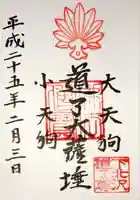 大天狗
道了大薩埵
小天狗
平成二十五年二月三日